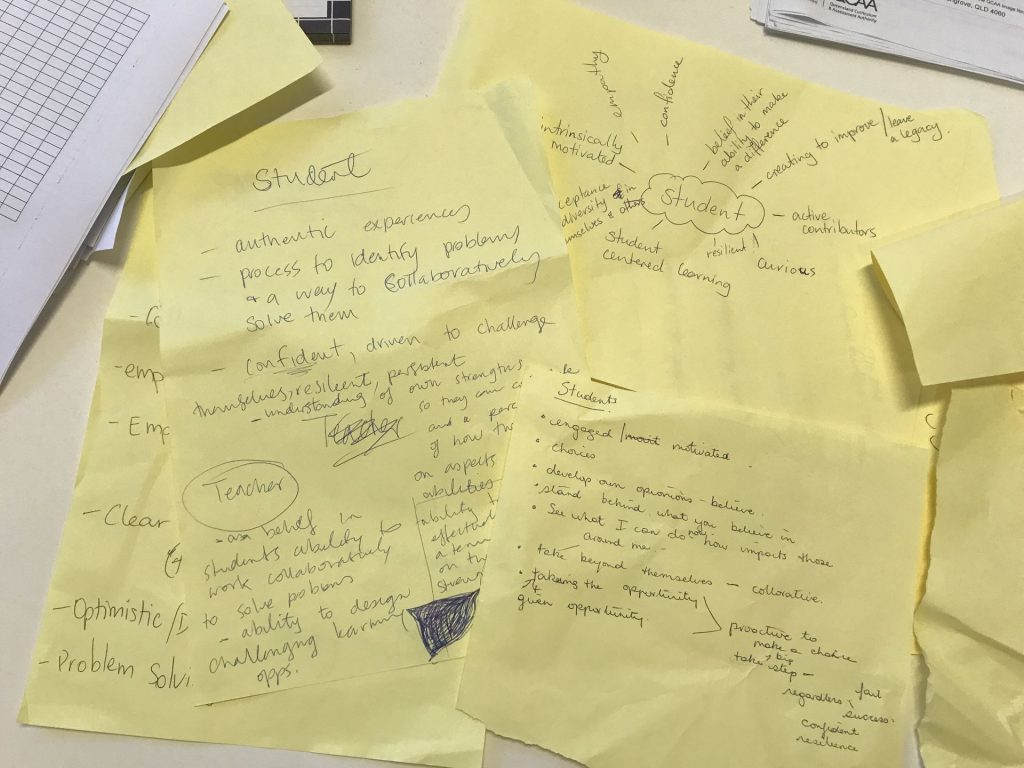 Student
- authentic experiences
- process to identify problems
+ a way to collaboratively
solve them
- confident, driven to challenge
themselves, resilient, persistent
- understanding of own strengths
so they can
and a
of how
on aspects
abilities
ability to
a team
on
Teacher
- belief in
students ability to
work collaboratively
to solve problems
- ability to design
challenging learning
opps.
- emp
- Emp
- Clear
- Optimistic / I
- Problem Solvi
QCAA
Queensland Curriculum
& Assessment Authority
QLD 4060
empathy
confidence
belief in their
ability to make
a difference
creating to improve / leave
a legacy.
intrinsically
motivated
Student
ceptance
diversity in
mselves & others
student
centered learning
resilient!
curious
- active
contributors
Students
• engaged / motivated.
• choices
• develop own opinions - believe.
• stand behind what you believe in
• See what I can do how impacts those
around me
• take beyond themselves - collorative.
• takeing the opportunity
+
given opportunity.
proactive to
make a choice
take big step -
regardless fail
success.
confident
resilience